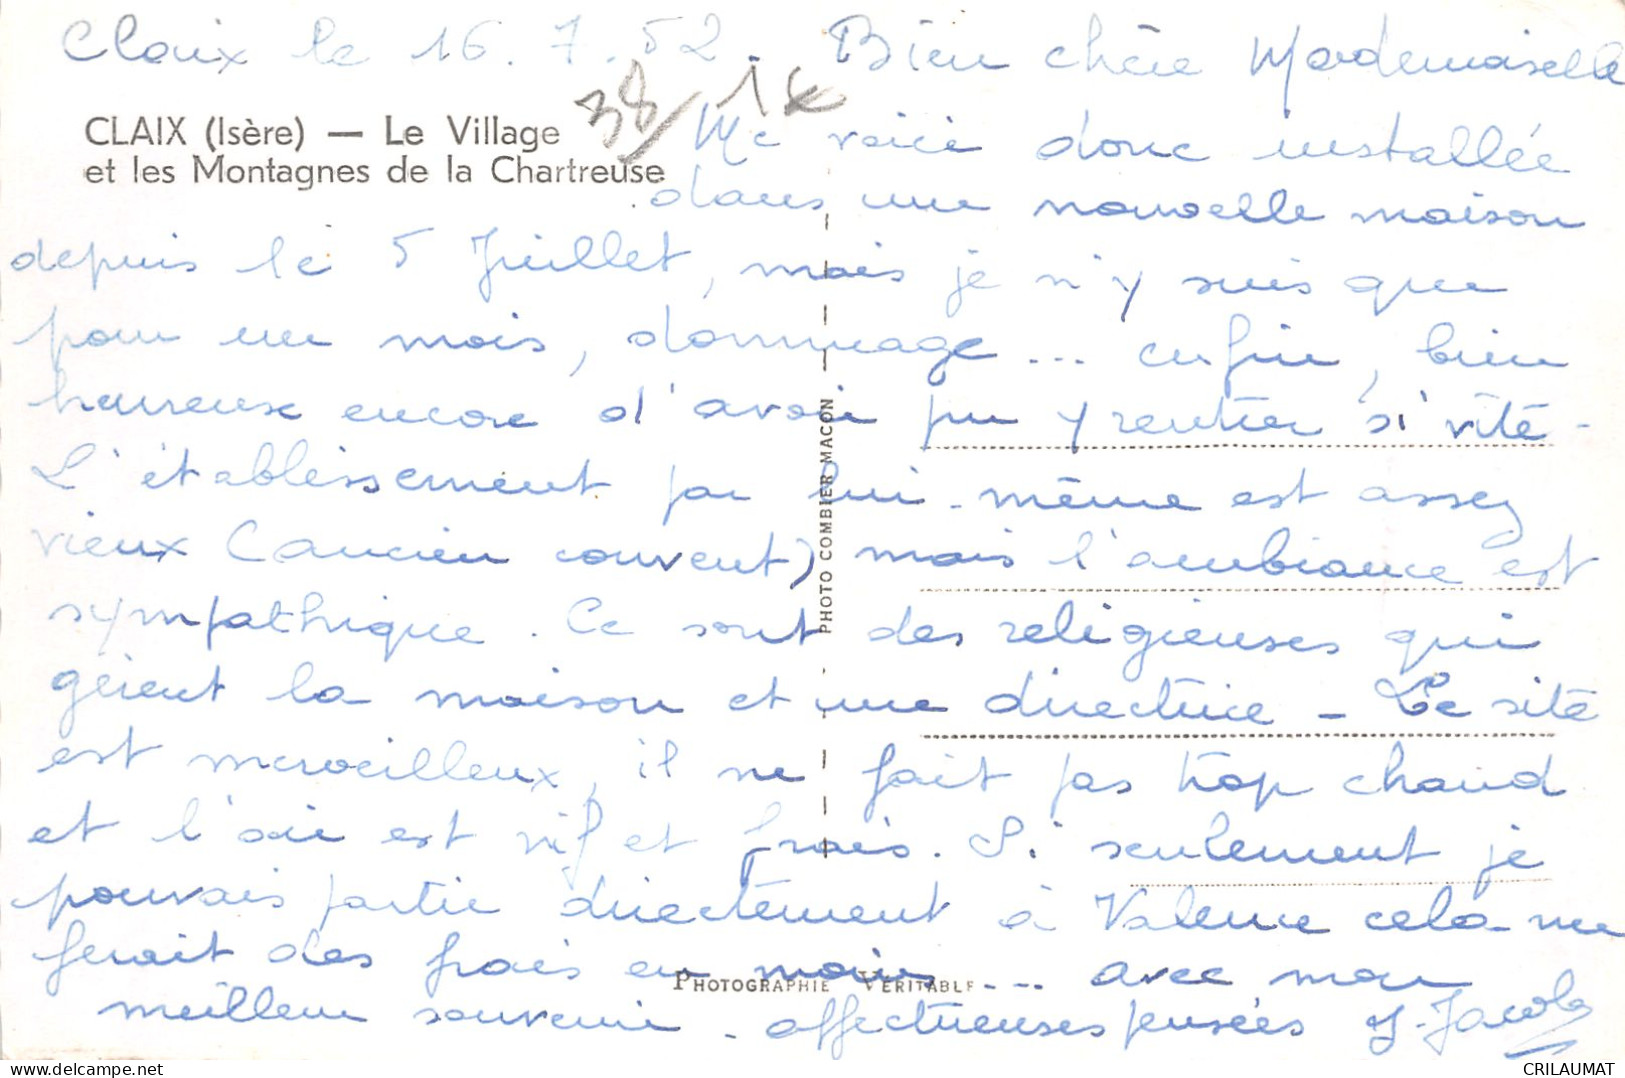 Claix le 16.7.52. Bien chère Mademoiselle
38 1€
CLAIX (Isère) — Le Village
et les Montagnes de la Chartreuse
Me voici donc installée
dans une nouvelle maison
depuis le 5 Juillet, mais je n'y suis que
pour un mois, dommage... enfin, bien
heureuse encore d'avoir pu y rentrer si vite -
L'établissement par lui-même est assez
vieux (ancien couvent) mais l'ambiance est
sympathique. Ce sont des religieuses qui
gèrent la maison et une directrice - Le site
est merveilleux, il ne fait pas trop chaud
et l'air est vif et frais. Si seulement je
pouvais partir directement à Valence cela me
ferait des frais en moins.... avec mon
meilleur souvenir - affectueuses pensées J. Jacob
PHOTO COMBIER MACON
PHOTOGRAPHIE VÉRITABLE
delcampe.net
CRILAUMAT